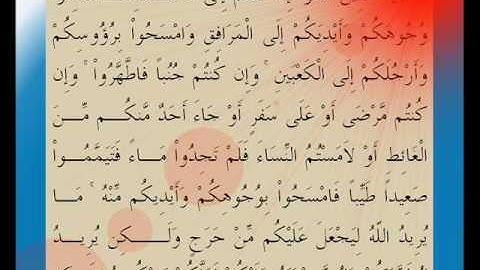 وُجُوهَكُمْ وَأَيْدِيَكُمْ إِلَى الْمَرَافِقِ وَامْسَحُواْ بِرُؤُوسِكُمْ
وَأَرْجُلَكُمْ إِلَى الْكَعْبَينِ ۚ وَإِن كُنتُمْ جُنُبًا فَاطَّهَّرُواْ ۚ وَإِن
كُنتُم مَّرْضَى أَوْ عَلَى سَفَرٍ أَوْ جَاءَ أَحَدٌ مَّنكُم مِّنَ
الْغَائِطِ أَوْ لاَمَسْتُمُ النِّسَاءَ فَلَمْ تَجِدُواْ مَاءً فَتَيَمَّمُواْ
صَعِيدًا طَيِّبًا فَامْسَحُواْ بِوُجُوهِكُمْ وَأَيْدِيكُم مِّنْهُ ۚ مَا
يُرِيدُ اللّهُ لِيَجْعَلَ عَلَيْكُم مِّنْ حَرَجٍ وَلَـكِن يُرِيدُ